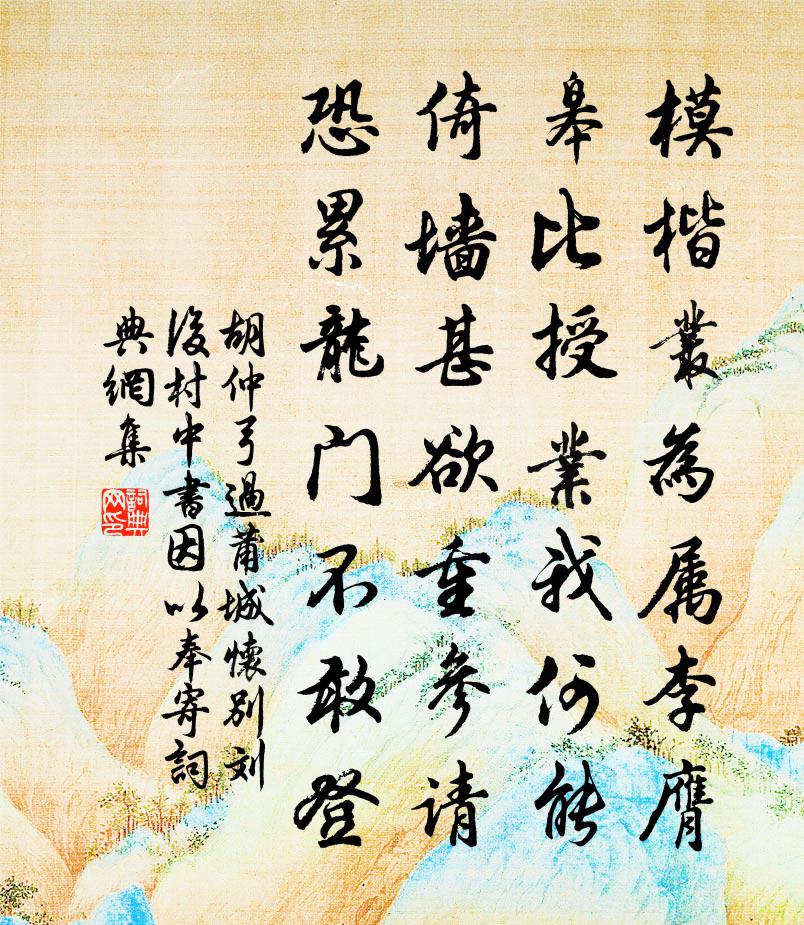 模楷丛為属李膺
皋比授業我何能
倚墙甚欲重參请
恐累龍门不敢登
胡仲弓過莆城懷别刘
後村中書因以奉寄詞
典網集
詞典
网印